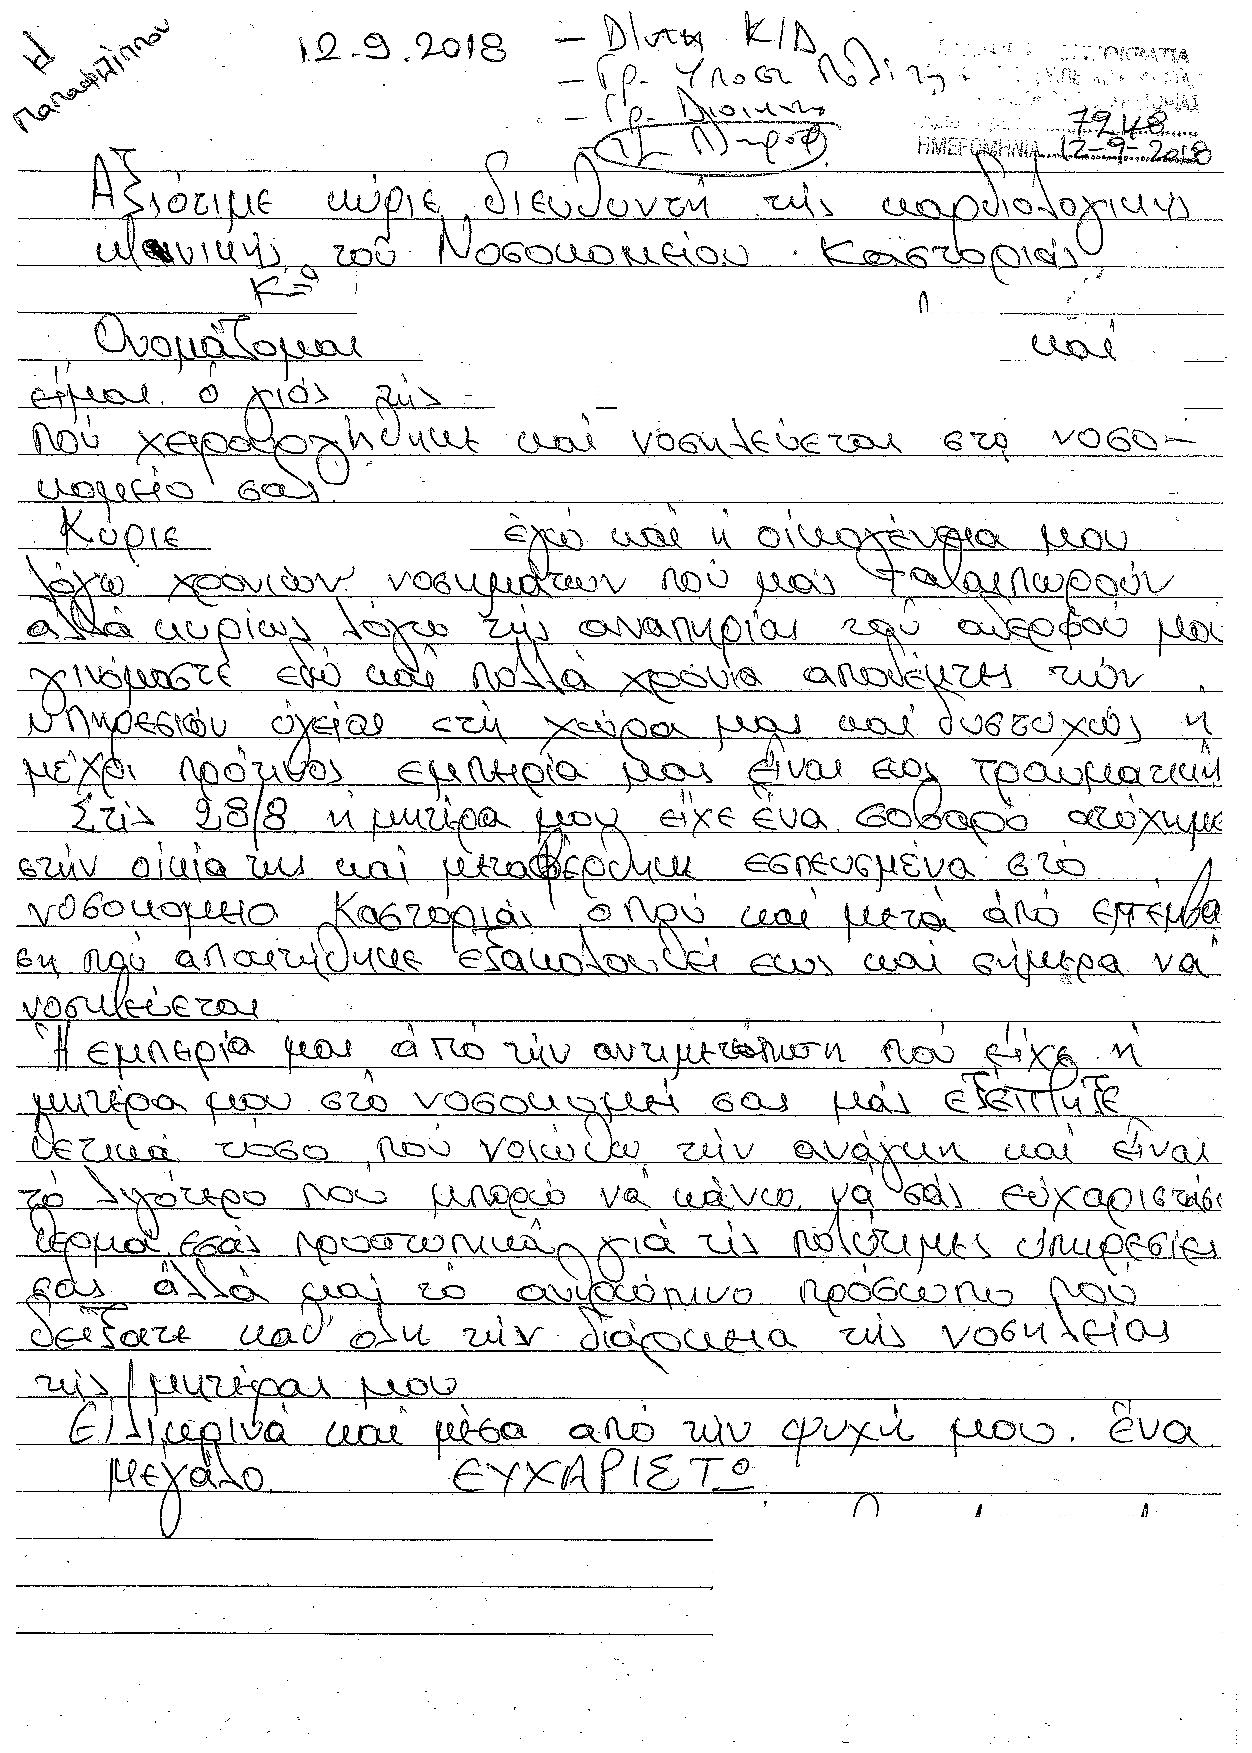 Παπαφιλίππου
12.9.2018
– Δ/ντη Κ/Δ
– Γρ. Υποστ Πολίτη
– Γρ. Διοικητη
Πληροφ
7248
ΗΜΕΡΟΜΗΝΙΑ 12-9-2018
Αξιότιμε κύριε διευθυντή τής καρδιολογικής
κλινικής τού Νοσοκομείου Καστοριάς
Κον
Ονομάζομαι και
είμαι ό γιός τής
πού χειρουργήθηκε καί νοσηλεύεται στο νοσο-
κομείο σας
Κύριε έγώ καί ή οίκογένεια μου
λόγω χρονίων νοσημάτων πού μάς ταλαιπωρούν
αλλά κυρίως λόγω τής αναπηρίας τού αδερφού μου
γινόμαστε εδώ καί πολλά χρόνια αποδέκτης τών
υπηρεσιών ύγείας στή χώρα μας καί δυστυχώς ή
μέχρι πρότινος εμπειρία μας είναι εώς τραυματική
Στίς 28/8 ή μητέρα μου είχε ένα σοβαρό ατύχημα
στήν οίκία της καί μεταφέρθηκε εσπευσμένα στό
νοσοκομειο Καστοριάς όπού καί μετά άπό επέμβα
ση πού απαιτήθηκε εξακολουθεί εως καί σήμερα νά
νοσηλεύεται
Ή εμπειρία μας άπό τήν αντιμετώπιση πού είχε ή
μητέρα μου στό νοσοκομεί σας μάς εξέπληξε
θετικά τοσο πού νοιώθω τήν ανάγκη καί είναι
τό λιγότερο που μπορώ νά κάνω νά σάς εύχαριστήσω
θερμά εσάς προσωπικά γιά τίς πολύτιμες ύπηρεσίες
σας άλλά γιαί τό ανθρώπινο πρόσωπο πού
δείξατε καθ' ολη τήν διάρκεια τής νοσηλείας
τής μητέρας μου
Είλικρινά καί μέσα από τήν ψυχή μου ένα
μεγάλο ΕΥΧΑΡΙΣΤΩ